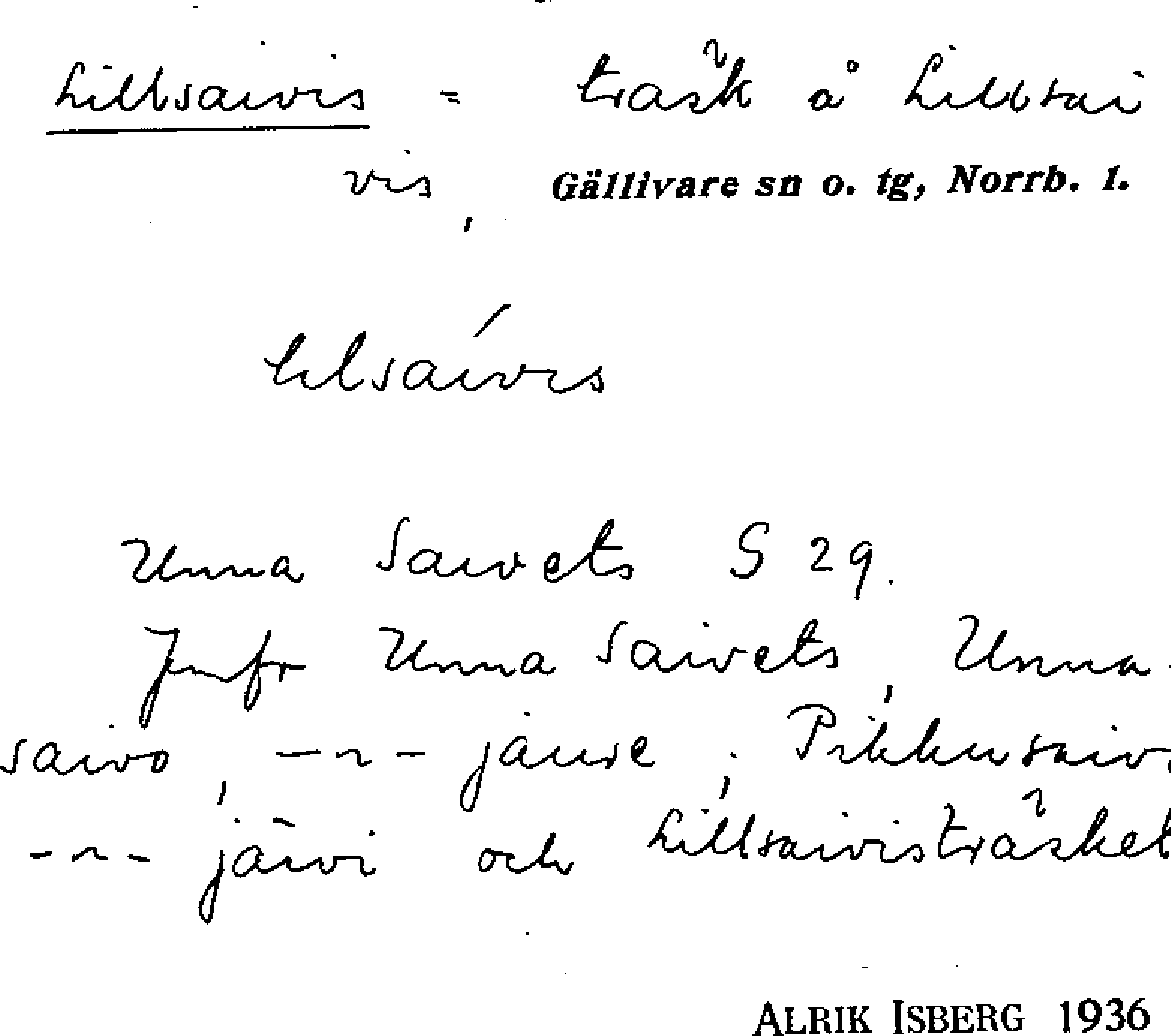 Lillsaivis = träsk å Lillsai
vis, Gällivare sn o. tg, Norrb. l.
lilsaívis
Unna Saivets S 29.
Jmfr Unna Saivets, Unna-
saivo, -"- jaure; Pikkusaiv,
-"- järvi och Lillsaivisträsket
ALRIK ISBERG 1936